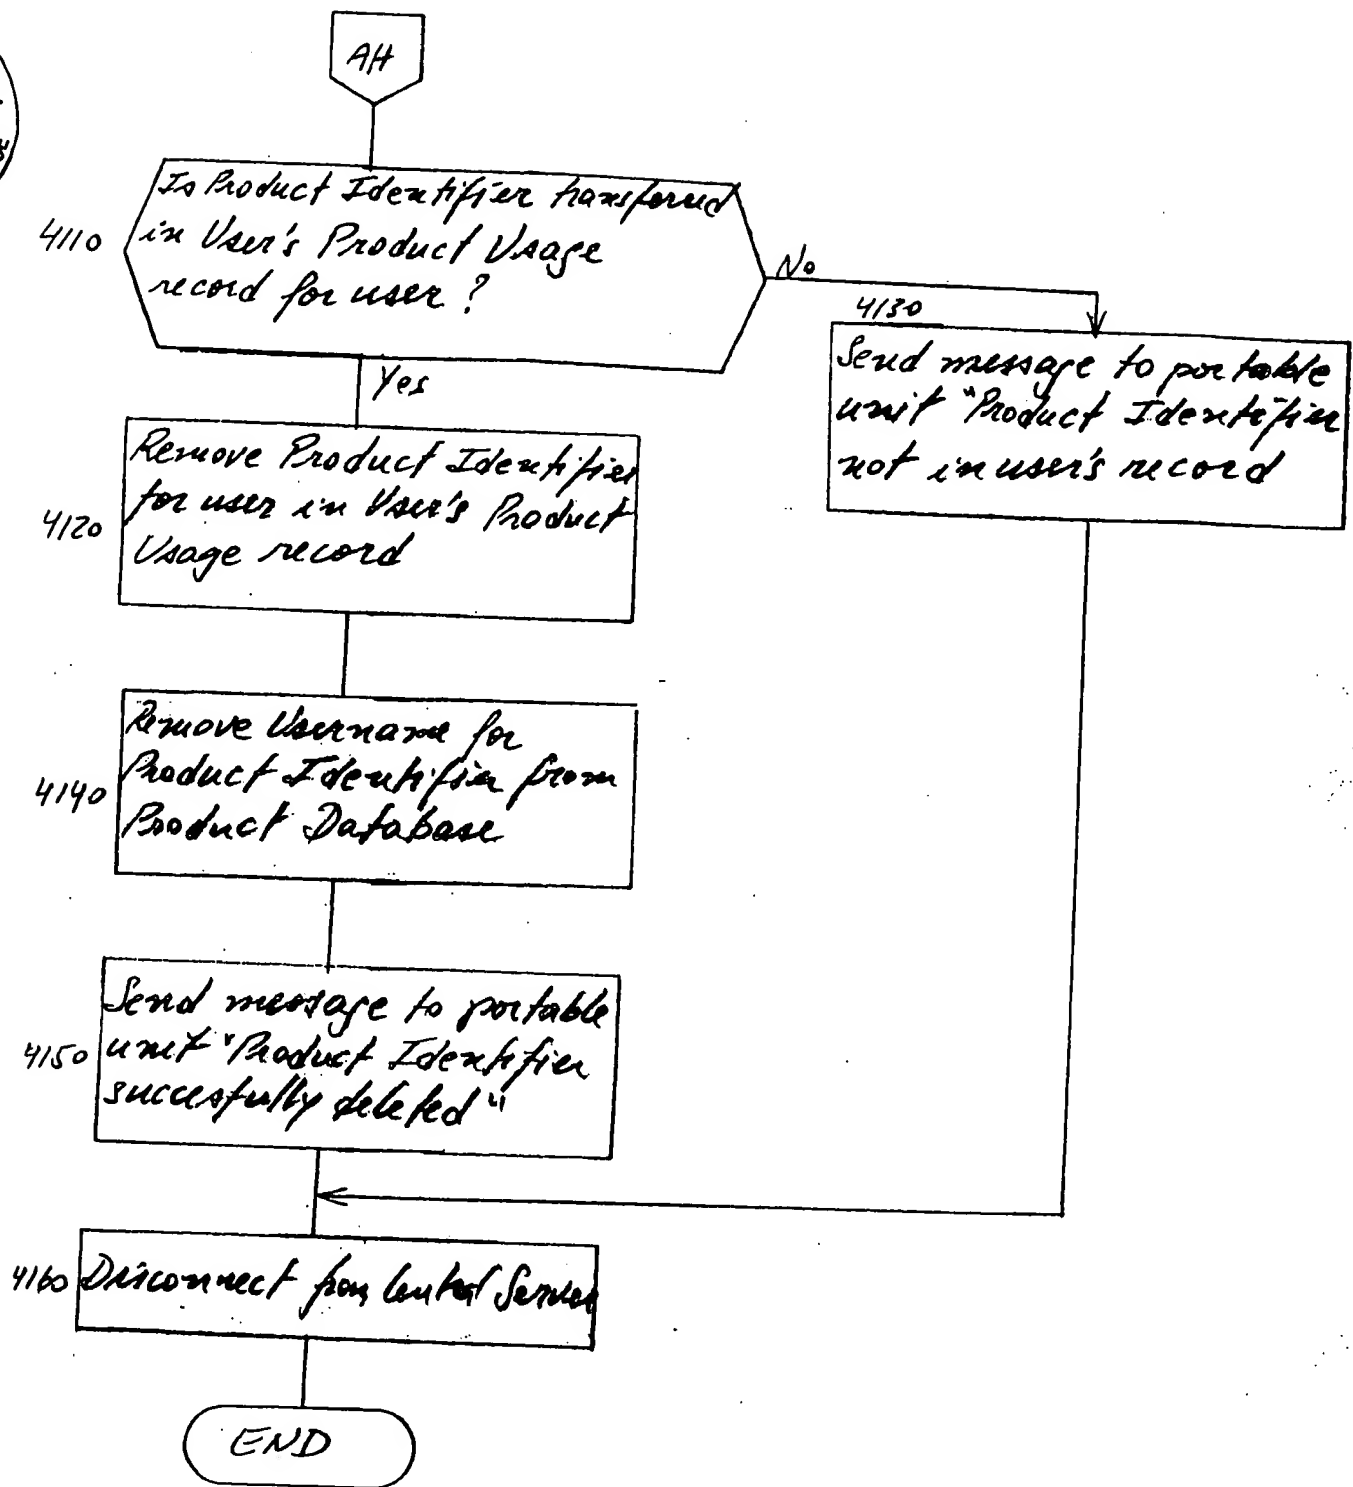 AH
4110
Is Product Identifier transferred
in User's Product Usage
record for user?
No
Yes
4130
Send message to portable
unit "Product Identifier
not in user's record
4120
Remove Product Identifier
for user in User's Product
Usage record
4140
Remove Username for
Product Identifier from
Product Database
4150
Send message to portable
unit "Product Identifier
succesfully deleted"
4160
Disconnect from Central Server
END